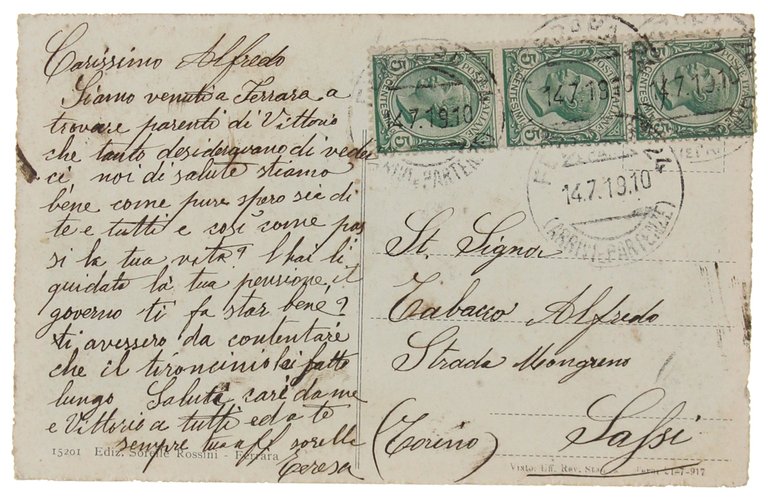 Carissimo Alfredo
Siamo venuti a Ferrara a
trovare parenti di Vittorio
che tanto desideravano di veder
ci noi di salute stiamo
bene come pure spero sia di
te e tutti e così come pas
si la tua vita? l'hai li
quidata la tua pensione, il
governo ti fa star bene?
ti avessero da contentare
che il tironcinio lai fatto
lungo Saluti cari da me
e Vittorio a tutti ed a te
sempre tua aff sorella
Teresa
15201 Ediz. Sorelle Rossini - Ferrara
POSTE ITALIANE
CENTESIMI
5 5
POSTE ITALIANE
CENTESIMI
5 5
POSTE ITALIANE
CENTESIMI
5 5
14.7.19.10
14.7.19.10
14.7.19.10
14.7.19.10
(ARRIVI E PARTENZE)
(ARRIVI E PARTENZE)
St. Signor
Tabacco Alfredo
Strada Mongreno
(Torino) Sassi
Visto: Uff. Rev. Sta 1-7-917